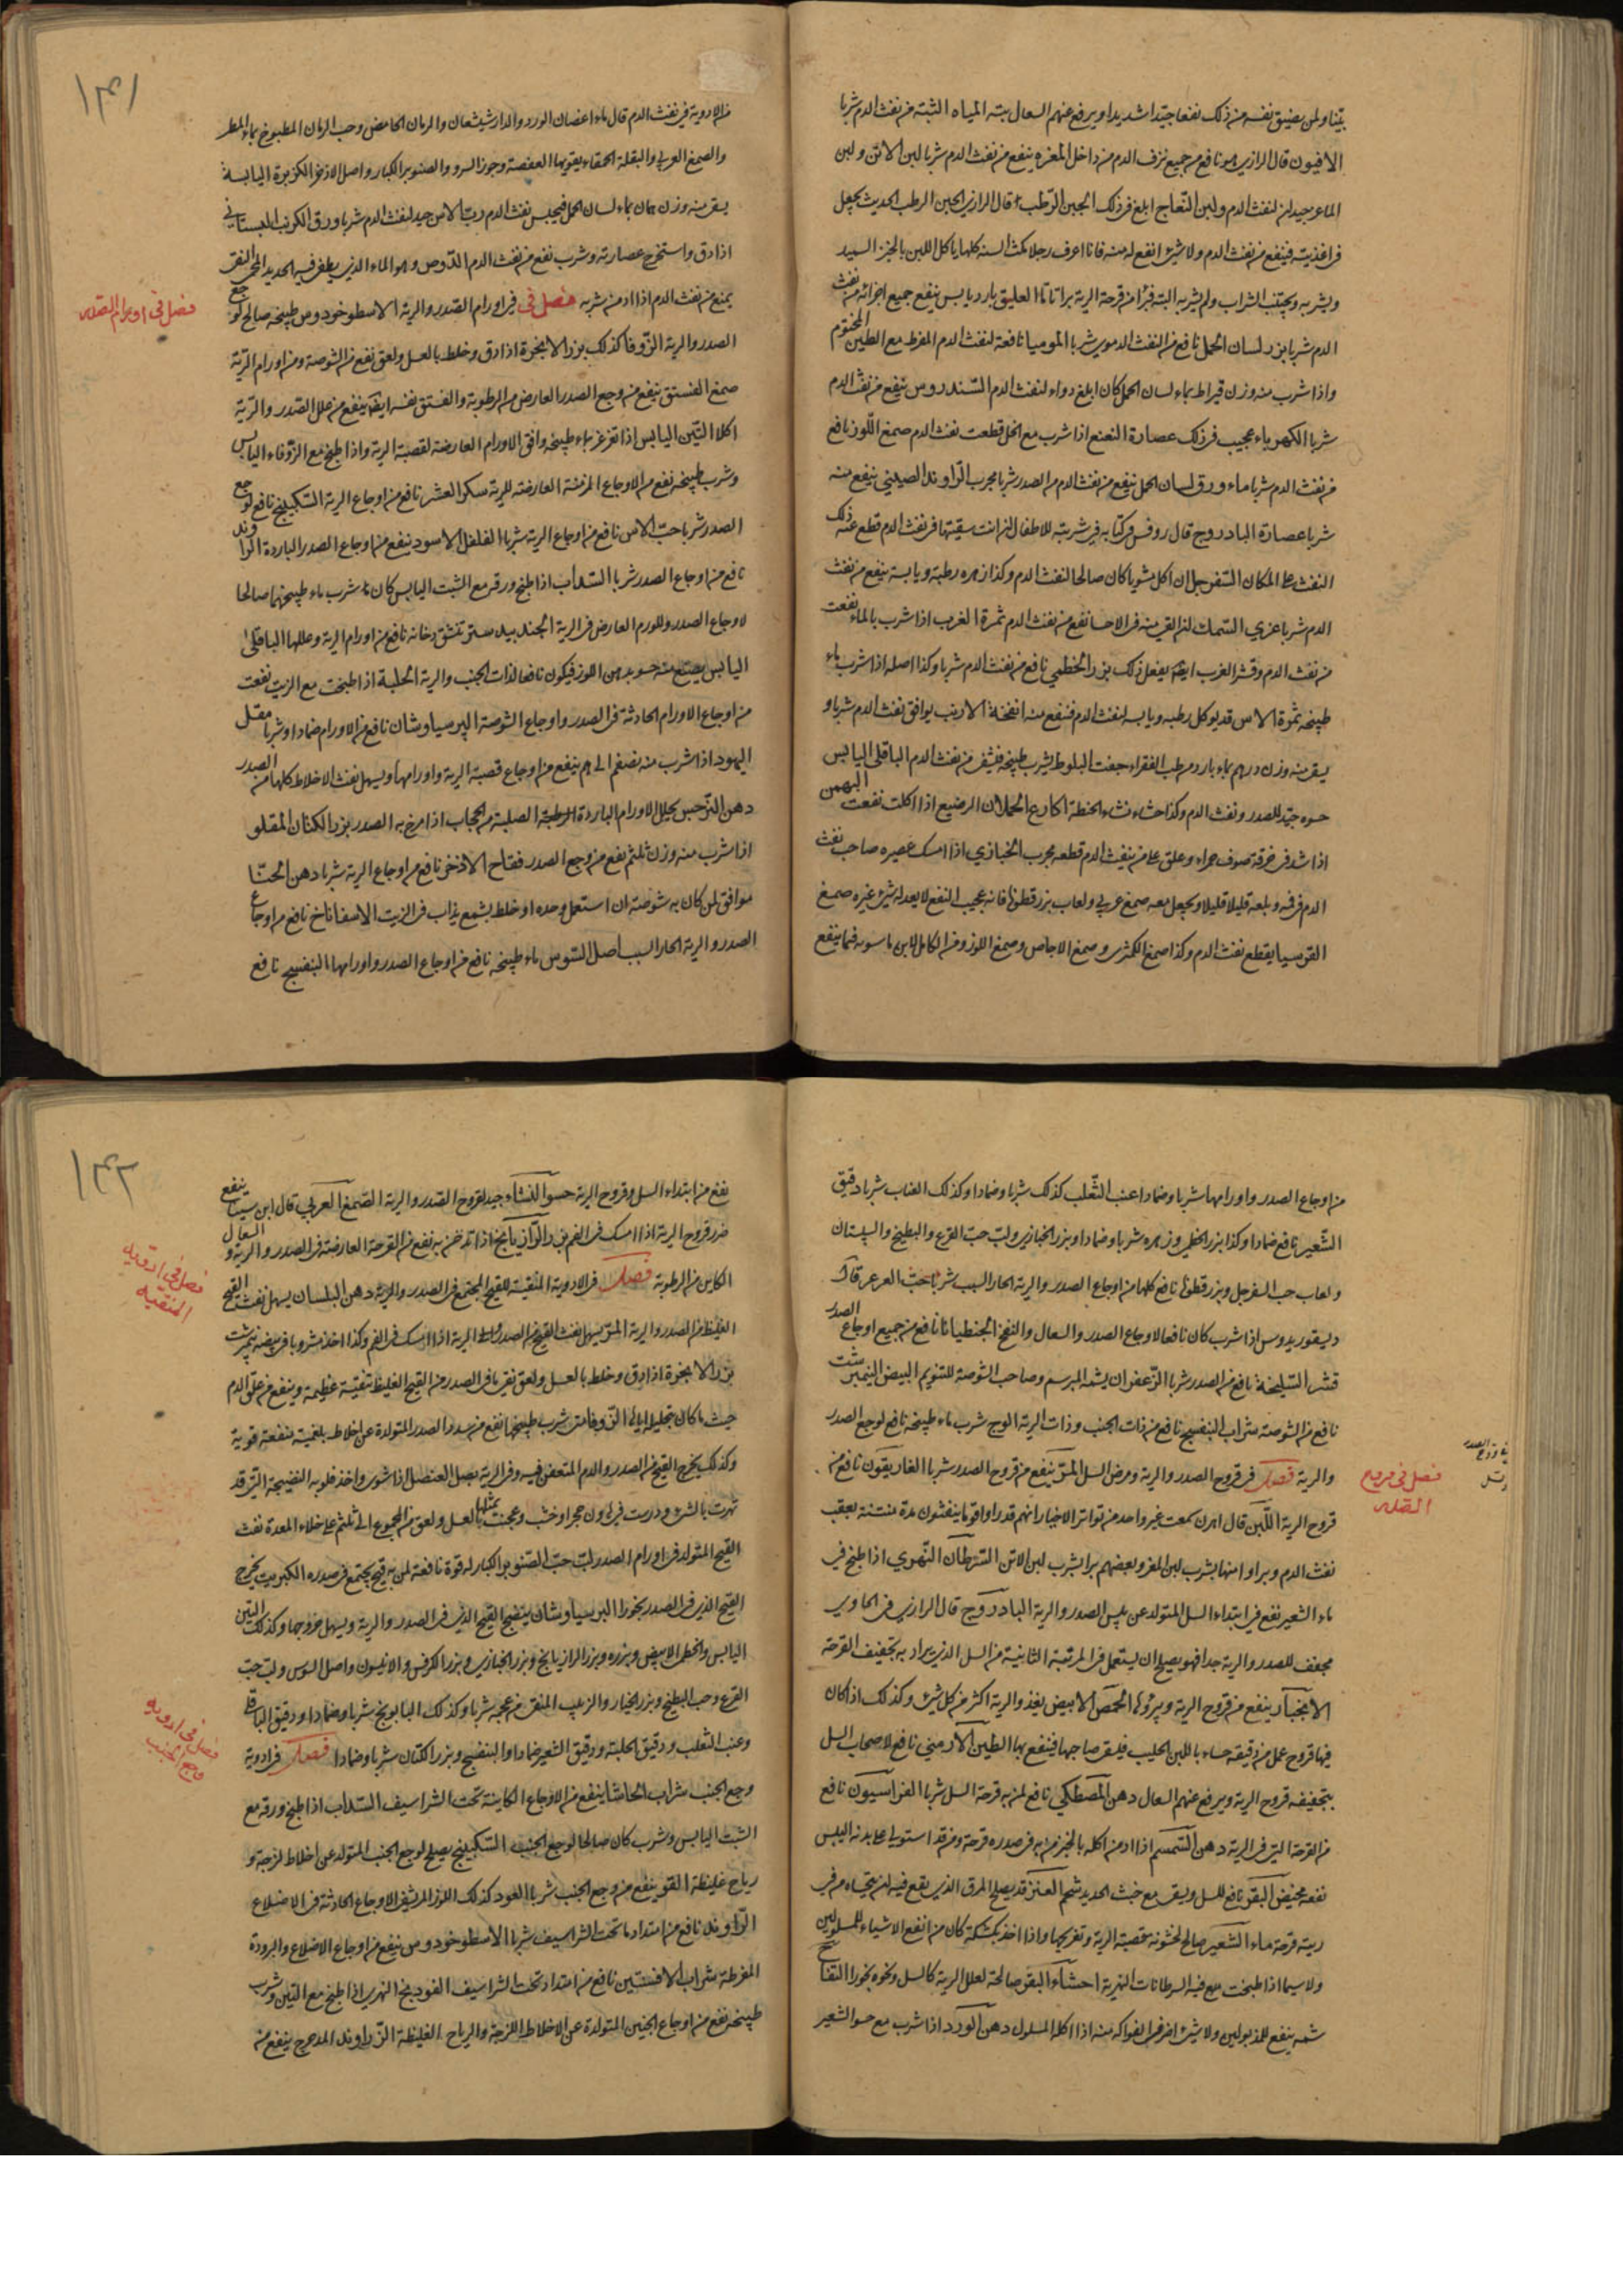 يتنا ولمن يضيق نفسه من ذلك نفعا جيدا شديدا ويرفع عنهم السعال بتة المياه النفث الدم شربا
الافيون قال الرازي هو نافع من جميع نزف الدم من داخل المغرة ينفع من نفث الدم شربا لبن الاتن ولبن
الماعز جيد لنفث الدم ولبن النعاج ابلغ في ذلك الجبن الرطب قال الرازي الجبن الرطب الحديث يجعل
في اغذيته فينفع من نفث الدم ولا شيء انفع له منه فانا اعرف رجلا مكث السنة كلها ياكل اللبن بالخبز السميد
ويشربه ويجتنب الشراب ولم يشربه البتة فبرأ من قرحة الرية براتاما العليق بارد يابس ينفع جميع اجزائه من نفث
الدم شربا بزر لسان الحمل نافع من النفث الدموي شربا الموميا نافعة لنفث الدم المفرط مع الطين المختوم
واذا شرب منه وزن قيراط بماء لسان الحمل كان ابلغ دواء لنفث الدم السندروس ينفع من نفث الدم
شربا الكهرباء عجيب في ذلك عصارة النعنع اذا شرب مع الخل قطعت نفث الدم صمغ اللوز نافع
من نفث الدم شربا ماء ورق لسان الحمل ينفع من نفث الدم من الصدر شربا مجرب الراوند الصيني ينفع منه
شربا عصارة البادروج قال روفس في كتابه في شربته للاطفال ان انت سقيتها في نفث الدم قطع عنه ذلك
النفث على المكان السفرجل ان اكل مشويا كان صالحا لنفث الدم وكذا زهره رطبه ويابسه ينفع من نفث
الدم شربا غري السمك ان القي منه في الاحسا نفع من نفث الدم ثمرة الغرب اذا شرب بالماء نفعت
من نفث الدم وقشر الغرب ايضا يفعل ذلك بزر الخطمي نافع من نفث الدم شربا وكذا اصله اذا شرب ماء
طبيخه ثمرة الاس قد يوكل رطبه ويابسه لنفث الدم فنفع منه انفخة الارنب يوافق نفث الدم شربا و
يسقى منه وزن درهم بماء بارد من طب الفقراء جفت البلوط يشرب طبيخه فينفع من نفث الدم الباقلى اليابس
حسوه جيد للصدر ونفث الدم وكذا حشاء نشاء الحنطة اكارع الحملان الرضيع اذا اكلت نفعت البهمن
اذا شد في خرقة صوف حمراء وعلق على من ينفث الدم قطعه مجرب الخبازي اذا امسك عصيره صاحب نفث
الدم في فيه وبلعه قليلا قليلا ويجعل معه صمغ عربي ولعاب بزر قطونا فانه عجيب النفع لا يعدله شيء غيره صمغ
القوسيا يقطع نفث الدم وكذا صمغ الكمثرى وصمغ الاجاص وصمغ اللوز ومن الكامل لابن ماسويه فيما ينفع
١٤١
من الادوية في نفث الدم قال ماء اغصان الورد والدارشيشعان والرمان الحامض وحب الرمان المطبوخ بماء المطر
والصمغ العربي والبقلة الحمقاء يقويها العفصة وجوز السرو والصنوبر الكبار واصل الاذخر الكزبرة اليابسة
يسقى منه وزن بماء لسان الحمل فيحبس نفث الدم ربّ الاس جيد لنفث الدم شربا ورق الكرنب البستاني
اذا دق واستخرج عصارته وشرب نفع من نفث الدم الدوص وهو الماء الذي يطفى فيه الحديد المحمى النفع
يمنع من نفث الدم اذا ادمن شربه فصل في في اورام الصدر والرية الاسطوخودوس طبيخه صالح لوجع
فصل في اورام الصدر
الصدر والرية الزوفا كذلك بزر الانجرة اذا دق وخلط بالعسل ولعق نفع من الشوصة ومن اورام الرية
صمغ الفستق ينفع من وجع الصدر العارض من الرطوبة والفستق نفسه ايضا ينفع من علل الصدر والرية
اكلا التين اليابس اذا تغرغر بماء طبيخه وافق الاورام العارضة لقصبة الرية واذا طبخ مع الزوفاء اليابس
وشرب طبيخه نفع من الاوجاع المزمنة العارضة للرية سكر العشر نافع من اوجاع الرية السكبينج نافع لوجع
الصدر شربا حب الاس نافع من اوجاع الرية شربا الفلفل الاسود ينفع من اوجاع الصدر الباردة الراوند
نافع من اوجاع الصدر شربا السذاب اذا طبخ ورقه مع الشبت اليابس كان شرب ماء طبيخهما صالحا
لاوجاع الصدر وللورم العارض في الرية الجندبيدستر تنشق دخانه نافع من اورام الرية وعللها الباقلى
اليابس يصنع منه حسو بدهن اللوز فيكون نافعا لذات الجنب والرية الحلبة اذا طبخت مع الزيت نفعت
من اوجاع الاورام الحادثة في الصدر واوجاع الشوصة البرسياوشان نافع من الاورام ضمادا وشربا مقل
اليهود اذا شرب منه نصف درهم ينفع من اوجاع قصبة الرية واورامها ويسهل نفث الاخلاط كلها من الصدر
دهن النرجس يحلل الاورام الباردة الرطبة الصلبة من الحجاب اذا مرخ به الصدر بزر الكتان المقلو
اذا شرب منه وزن نفع من وجع الصدر فقاح الاذخر نافع من اوجاع الرية شربا دهن الحنا
موافق لمن كان به شوصة ان استعمل وحده او خلط بشمع يذاب في الزيت الاسفاناخ نافع من اوجاع
الصدر والرية الحار السبب اصل السوس ماء طبيخه نافع من اوجاع الصدر واورامها البنفسج نافع
من اوجاع الصدر واورامها شربا وضمادا عنب الثعلب كذلك شربا وضمادا وكذلك العناب شربا دقيق
الشعير نافع ضمادا وكذا بزر الخطمي وزهره شربا وضمادا وبزر الخبازي ولب حب القرع والبطيخ والسبستان
ولعاب حب السفرجل وبزر قطونا نافع كلها من اوجاع الصدر والرية الحار السبب شربا حب العرعر قال
ديسقوريدوس اذا شرب كان نافعا لاوجاع الصدر والسعال والنفخ الجنطيانا نافع من جميع اوجاع الصدر
قشر السليخة نافع من الصدر شربا الزعفران يشمه المبرسم وصاحب الشوصة للتنويم البيض النيمبرشت
نافع من الشوصة شراب البنفسج نافع من ذات الجنب وذات الرية الوج شرب ماء طبيخه نافع لوجع الصدر
والرية فصل في قروح الصدر والرية ومرض السل المر ينفع من قروح الصدر شربا الغاريقون نافع من
فصل في قروح
الصدر
قروح الرية اللبن قال اهرن سمعت غير واحد من تواتر الاخبار انهم قد راوا قوما ينفثون مدة منتنة بعقب
نفث الدم وبراوا منها بشرب لبن المغز وبعضهم برا بشرب لبن الاتن السرطان النهري اذا طبخ في
ماء الشعير نفع في ابتداء السل المتولد عن يبس الصدر والرية البادروج قال الرازي في الحاوي
مجفف للصدر والرية جدا فهو يصلح ان يستعمل في المرتبة الثانية من السل الذي يراد به تجفيف القرحة
الانجبار ينفع من قروح الرية ويبرؤها الحمص الابيض يغذو الرية اكثر من كل شيء وكذلك اذا كان
فيها قروح عمل من دقيقه حساء باللبن الحليب فليسق صاحبها فينفع بها الطين الارمني نافع لاصحاب السل
بتجفيفه قروح الرية ويرفع عنهم السعال دهن المصطكي نافع لمن به قرحة السل شربا الفراسيون نافع
من القرحة التي في الرية دهن السمسم اذا ادمن اكله بالخبز من به في صدره قرحة ومن قد استولى على بدنه اليبس
نفعه مخيض البقر نافع للسل ويسقى مع خبث الحديد شحم العنز قد يصلح المرق الذي يقع فيه لمن يتحساه من في
ريته قرحة ماء الشعير صالح لخشونة قصبة الرية وتفريجها واذا اخذ بكشكه كان من انفع الاشياء للمسلولين
ولاسيما اذا طبخت مع فيه السرطانات النهرية احشاء البقر صالحة لعلل الرية كالسل ونحوه بخورا التفاح
شمه ينفع للمذبولين ولا شيء اضر في الفواكه منه اذا اكله المسلول دهن الورد اذا شرب مع حسو الشعير
١٤٢
نفع من ابتداء السل وقروح الرية حسو النشاء جيد لقروح الصدر والرية الصمغ العربي قال ابن سينا ينفع
ضرر قروح الرية اذا امسك في الفم بزر الرازيانج اذا تدخن به نفع من القرحة العارضة في الصدر والرية والسعال
الكاين من الرطوبة فصل في الادوية المنقية للقيح المجتمع في الصدر والرية دهن البلسان يسهل نفث القيح
فصل في ادويه
المنقيه
الغليظ من الصدر والرية المر يسهل نفث القيح من الصدر والرية اذا امسك في الفم وكذا اخذ مشروبا في بيضة نيمرشت
بزر الانجرة اذا دق وخلط بالعسل ولعق نقى ما في الصدر من القيح الغليظ تنقية عظيمة وينفع من علق الدم
حيث ما كان بتحليله اياه الزوفا متى شرب طبيخها نفع من سدد الصدر المتولدة عن اخلاط بلغمية منفعة قوية
وكذلك يخرج القيح من الصدر والدم المتعفن فيه وفي الرية بصل العنصل اذا شوي واخذ قلوبه النضيجة التي قد
تهرت بالشي ودرست في هاون حجر او خشب وعجنت بمثلها بالعسل ولعق من المجموع الى على خلاء المعدة نفث
القيح المتولد في اورام الصدر لب حب الصنوبر الكبار له قوة نافعة لمن به قيح يجتمع في صدره الكبريت يخرج
القيح الذي في الصدر بخورا البرسياوشان ينضج القيح الذي في الصدر والرية ويسهل خروجها وكذلك التين
اليابس والخطمي الابيض وبزره وبزر الرازيانج وبزر الخبازي وبزر الكرفس والانيسون واصل السوس ولب حب
القرع وحب البطيخ وبزر الخيار والزبيب المنقى من عجمه شربا وكذلك البابونج شربا وضمادا ودقيق الباقلا
وعنب الثعلب ودقيق الحلبة ودقيق الشعير ضمادا والبنفسج وبزر الكتان شربا وضمادا فصل في ادوية
فصل في ادويه
وجع الجنب
وجع الجنب شراب الحاشا ينفع من الاوجاع الكاينة تحت الشراسيف السذاب اذا طبخ ورقه مع
الشبت اليابس وشرب كان صالحا لوجع الجنب السكبينج يصلح لوجع الجنب المتولد عن اخلاط لزجة و
رياح غليظة القو ينفع من وجع الجنب شربا العود كذلك اللوز المر يشفي الاوجاع الحادثة في الاضلاع
الراوند نافع من امتداد ما تحت الشراسيف شربا الاسطوخودوس ينفع من اوجاع الاضلاع والبرودة
المفرطة شراب الافسنتين نافع من امتداد تحت الشراسيف الفوديخ النهري اذا طبخ مع التين وشرب
طبيخه نفع من اوجاع الجنبين المتولدة عن الاخلاط اللزجة والرياح الغليظة الزراوند المدحرج ينفع منه